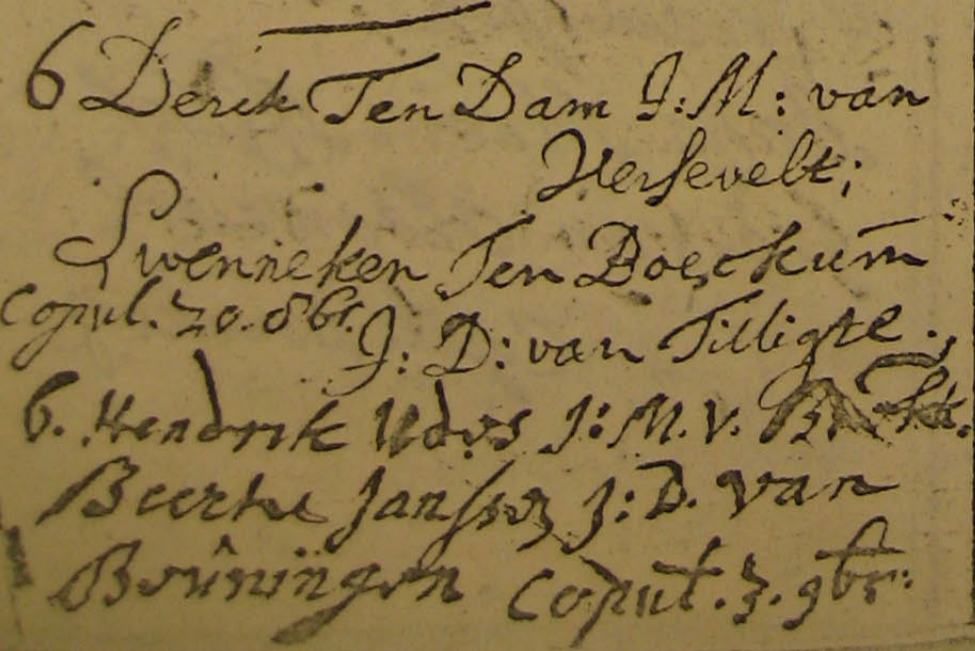 6 Derck Ten Dam J: M: van
Hersevelt;
Swenneken Ten Boeckum
Copul. 20. 8br. J: D: van Tilligte.
6. Hendrik J: M. v.
Beerte Janssen J: D. van
Brüningen Copul. 3. 9br: